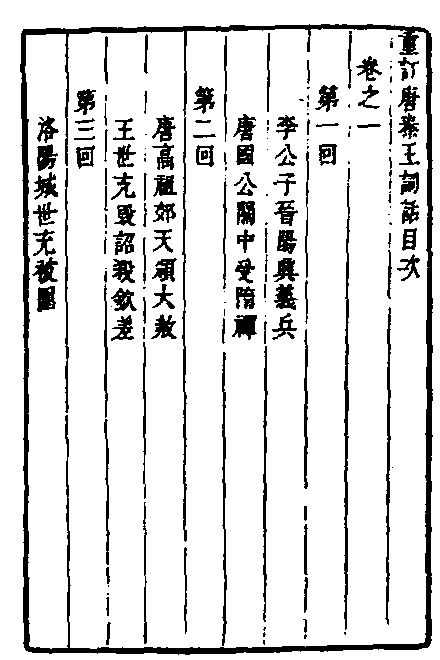 重訂唐秦王詞話目次
卷之一
第一回
李公子晉陽興義兵
唐國公關中受隋禪
第二回
唐高祖郊天頒大赦
王世充毀詔殺欽差
第三回
洛陽城世充被圍